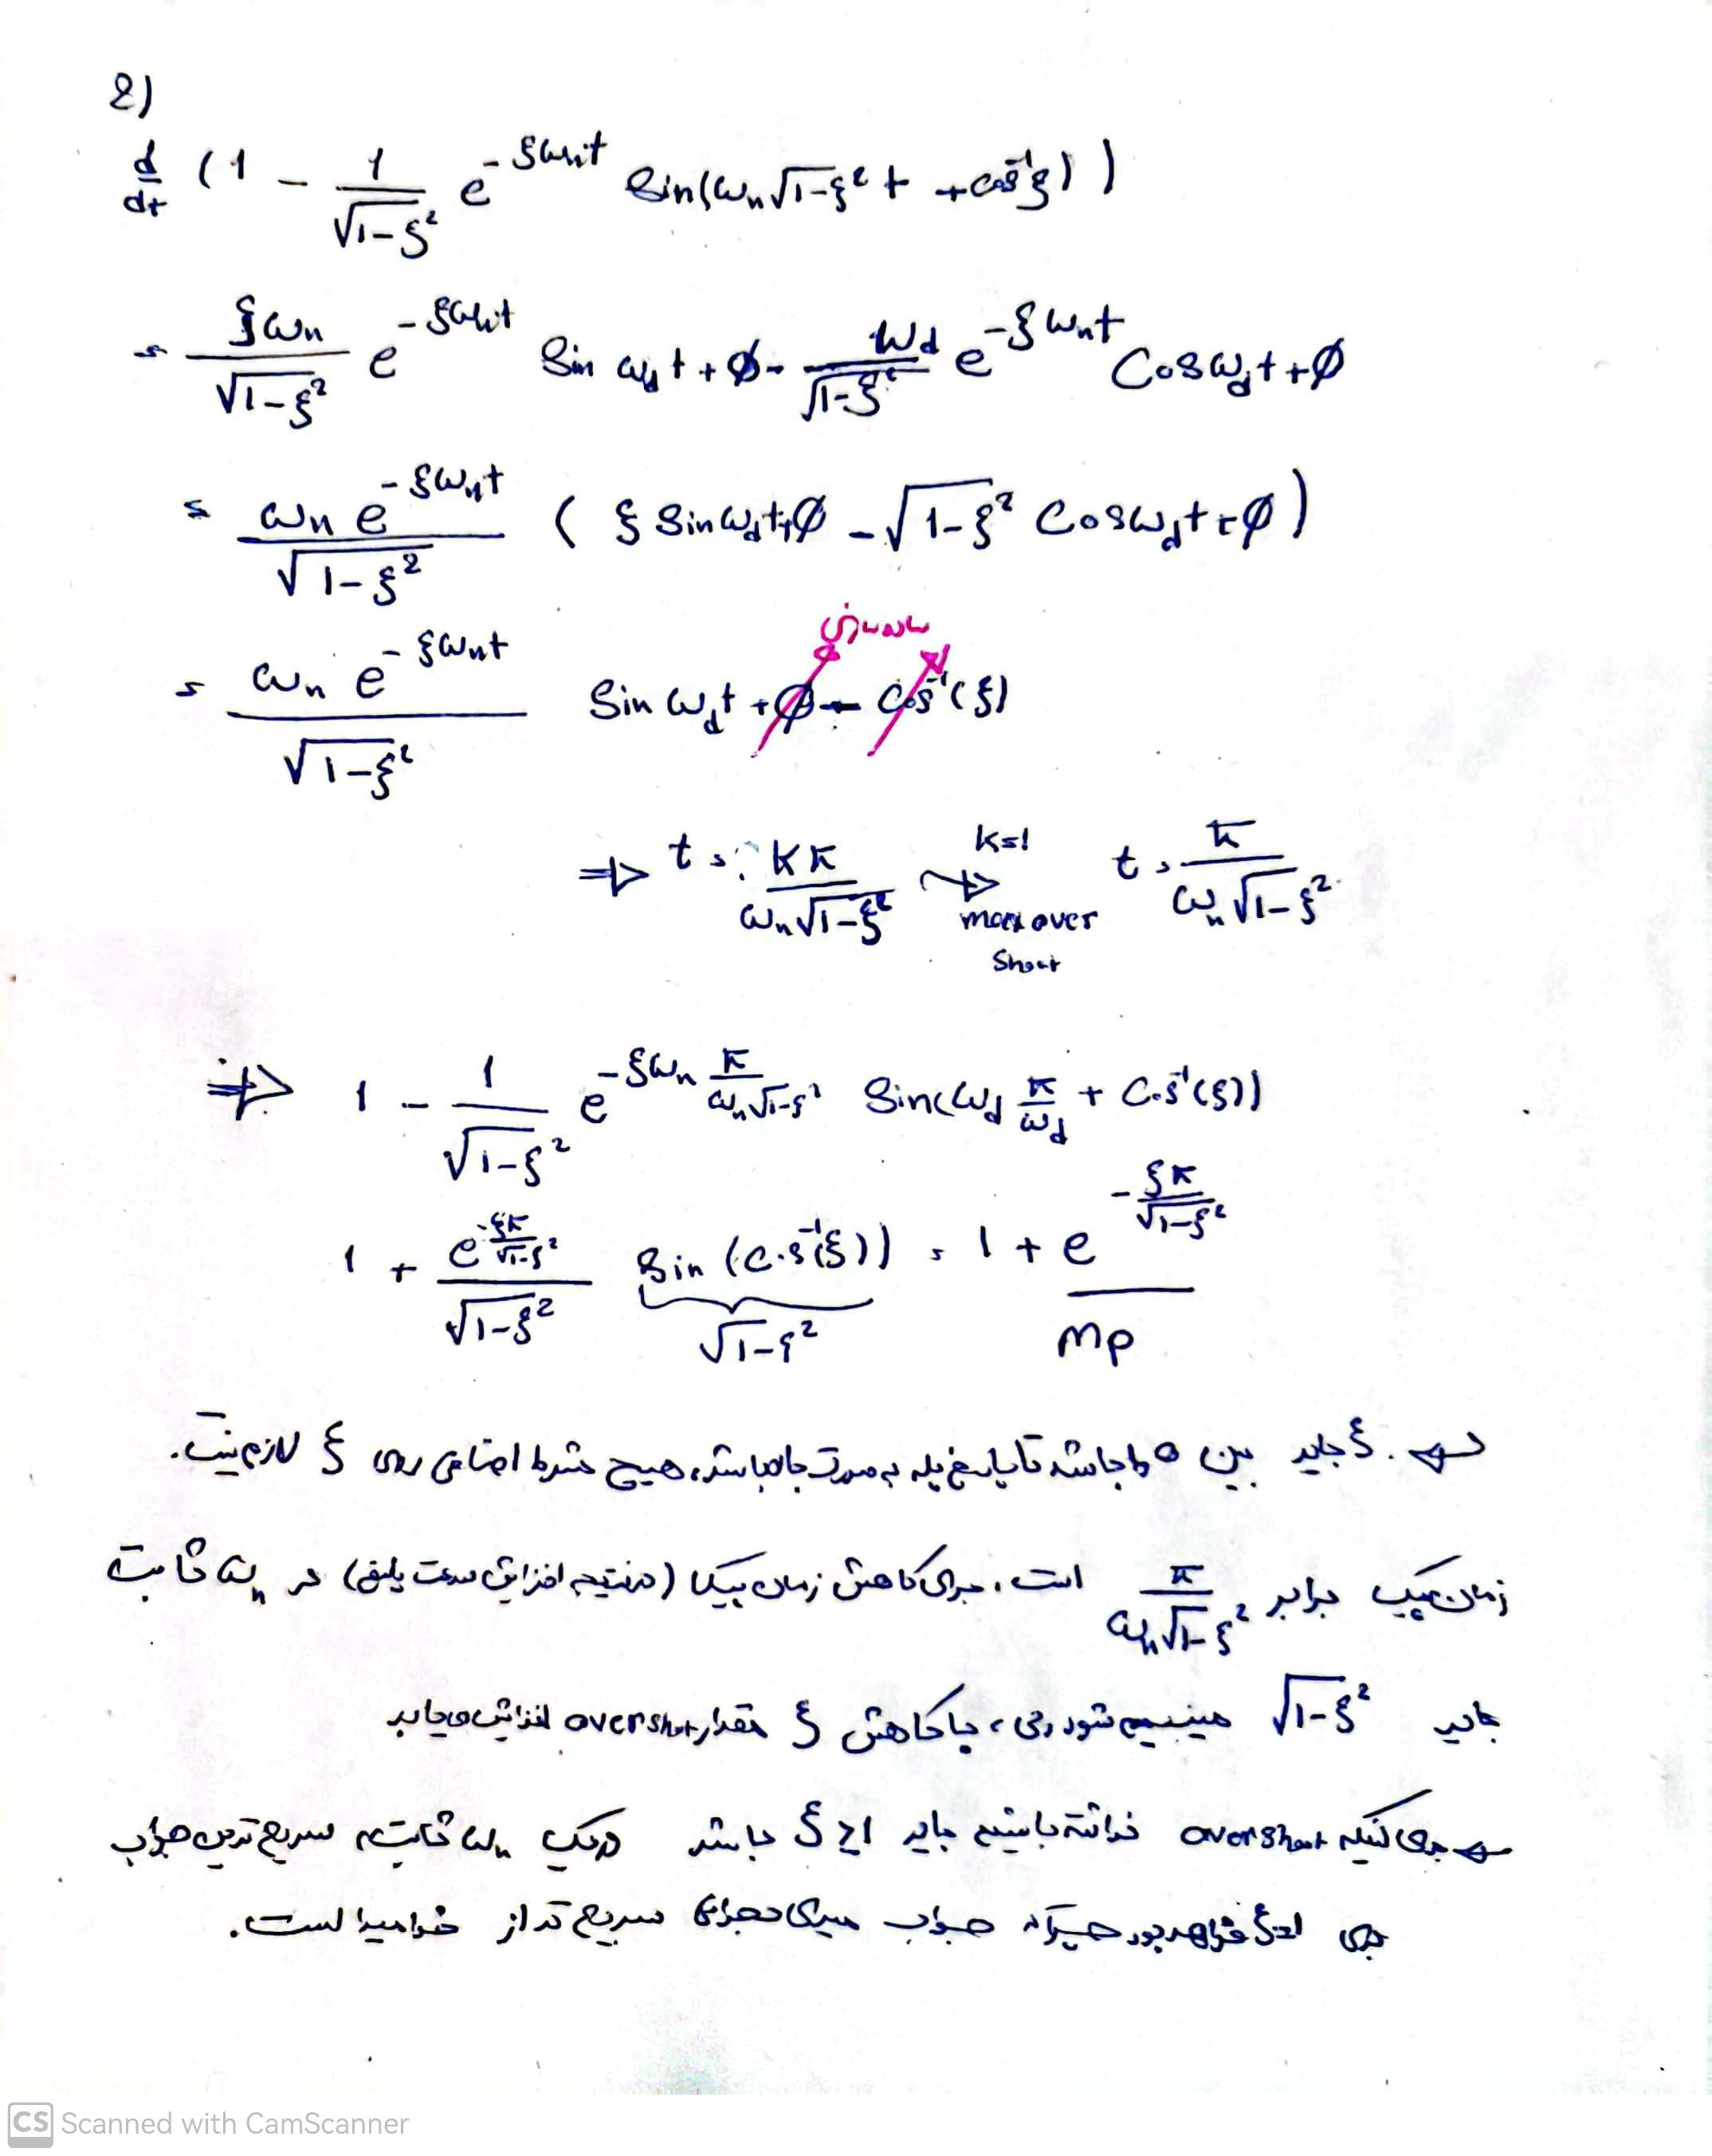 2)
d/dt (1 - 1/√(1-ξ²) e^(-ξωnt) Sin(ωn√(1-ξ²) t + cos⁻¹ξ))
= ξωn/√(1-ξ²) e^(-ξωnt) Sin ωdt+ø - ωd/√(1-ξ²) e^(-ξωnt) Cos ωdt+ø
= ωn e^(-ξωnt)/√(1-ξ²) (ξ Sin ωdt+ø - √(1-ξ²) Cos ωdt+ø)
= ωn e^(-ξωnt)/√(1-ξ²) Sin ωdt + ø - Cos⁻¹(ξ)
⇒ t = kπ/(ωn√(1-ξ²)) k=1 max over shoot t = π/(ωn√(1-ξ²))
⇒ 1 - 1/√(1-ξ²) e^(-ξωn π/(ωn√(1-ξ²))) Sin(ωd π/ωd + Cos⁻¹(ξ))
1 + e^(-ξπ/√(1-ξ²))/√(1-ξ²) Sin (Cos⁻¹(ξ)) = 1 + e^(-ξπ/√(1-ξ²))
√(1-ξ²) Mp
ξ باید بین 0 و 1 باشد تا پاسخ پله به صورت بالا باشد، هیچ شرط اضافی روی ξ لازم نیست.
زمان پیک برابر π/(ωn√(1-ξ²)) است، برای کاهش زمان پیک (در نتیجه افزایش سرعت پاسخ) در ωn ثابت
باید √(1-ξ²) مینیمم شود ولی، با کاهش ξ مقدار overshot افزایش می‌یابد
برای اینکه overshoot نداشته باشیم باید ξ≥1 باشد در یک ωn ثابت، سریع ترین جواب
برای ξ=1 خواهد بود چرا که جواب میرای بحرانی سریع تر از فرامیرا است.
CS Scanned with CamScanner